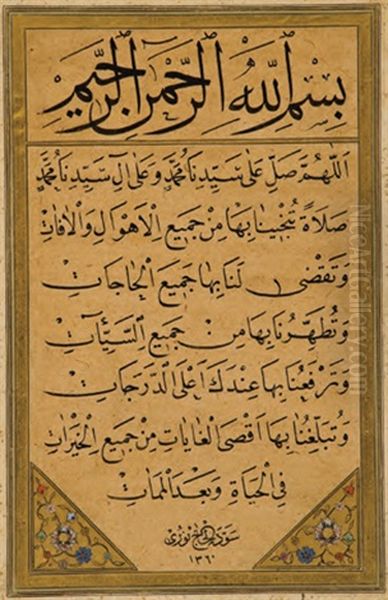 بِسْمِ اللّٰهِ الرَّحْمٰنِ الرَّحِيْمِ
اَللّٰهُمَّ صَلِّ عَلٰى سَيِّدِنَا مُحَمَّدٍ وَعَلٰى اٰلِ سَيِّدِنَا مُحَمَّدٍ
صَلَاةً تُنْجِينَا بِهَا مِنْ جَمِيعِ الْاَهْوَالِ وَالْاٰفَاتِ
وَتَقْضٖى لَنَا بِهَا جَمِيعَ الْحَاجَاتِ
وَتُطَهِّرُنَا بِهَا مِنْ جَمِيعِ السَّيِّئَاتِ
وَتَرْفَعُنَا بِهَا عِنْدَكَ اَعْلَى الدَّرَجَاتِ
وَتُبَلِّغُنَا بِهَا اَقْصَى الْغَايَاتِ مِنْ جَمِيعِ الْخَيْرَاتِ
فِي الْحَيَاةِ وَبَعْدَ الْمَمَاتِ
سوده الحاج نوري
١٣٦٠